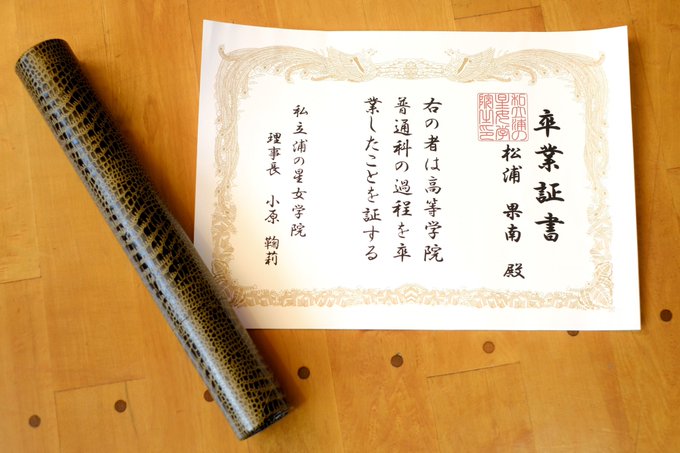 卒業証書
松浦 果南 殿
右の者は高等学院
普通科の過程を卒
業したことを証する
私立浦の星女学院
理事長 小原 鞠莉